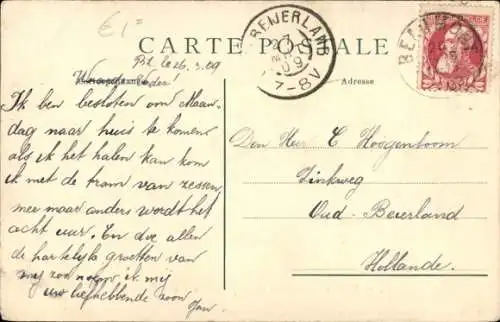 € 1=
CARTE POSTALE
BEIJERLAND
27
09
7-8V
Br. le 26.3.09
Adresse
Ik ben besloten om Maan-
dag naar huis te komen
als ik het halen kan kom
ik met de tram van zessen
mee maar anders wordt het
acht uur. En doe allen
de hartelijke groetten van
mij zoo noem ik mij
uw liefhebbende zoon
Jan
Den Heer C Hoogenboom
Zinkweg
Oud-Beierland
Hollande.